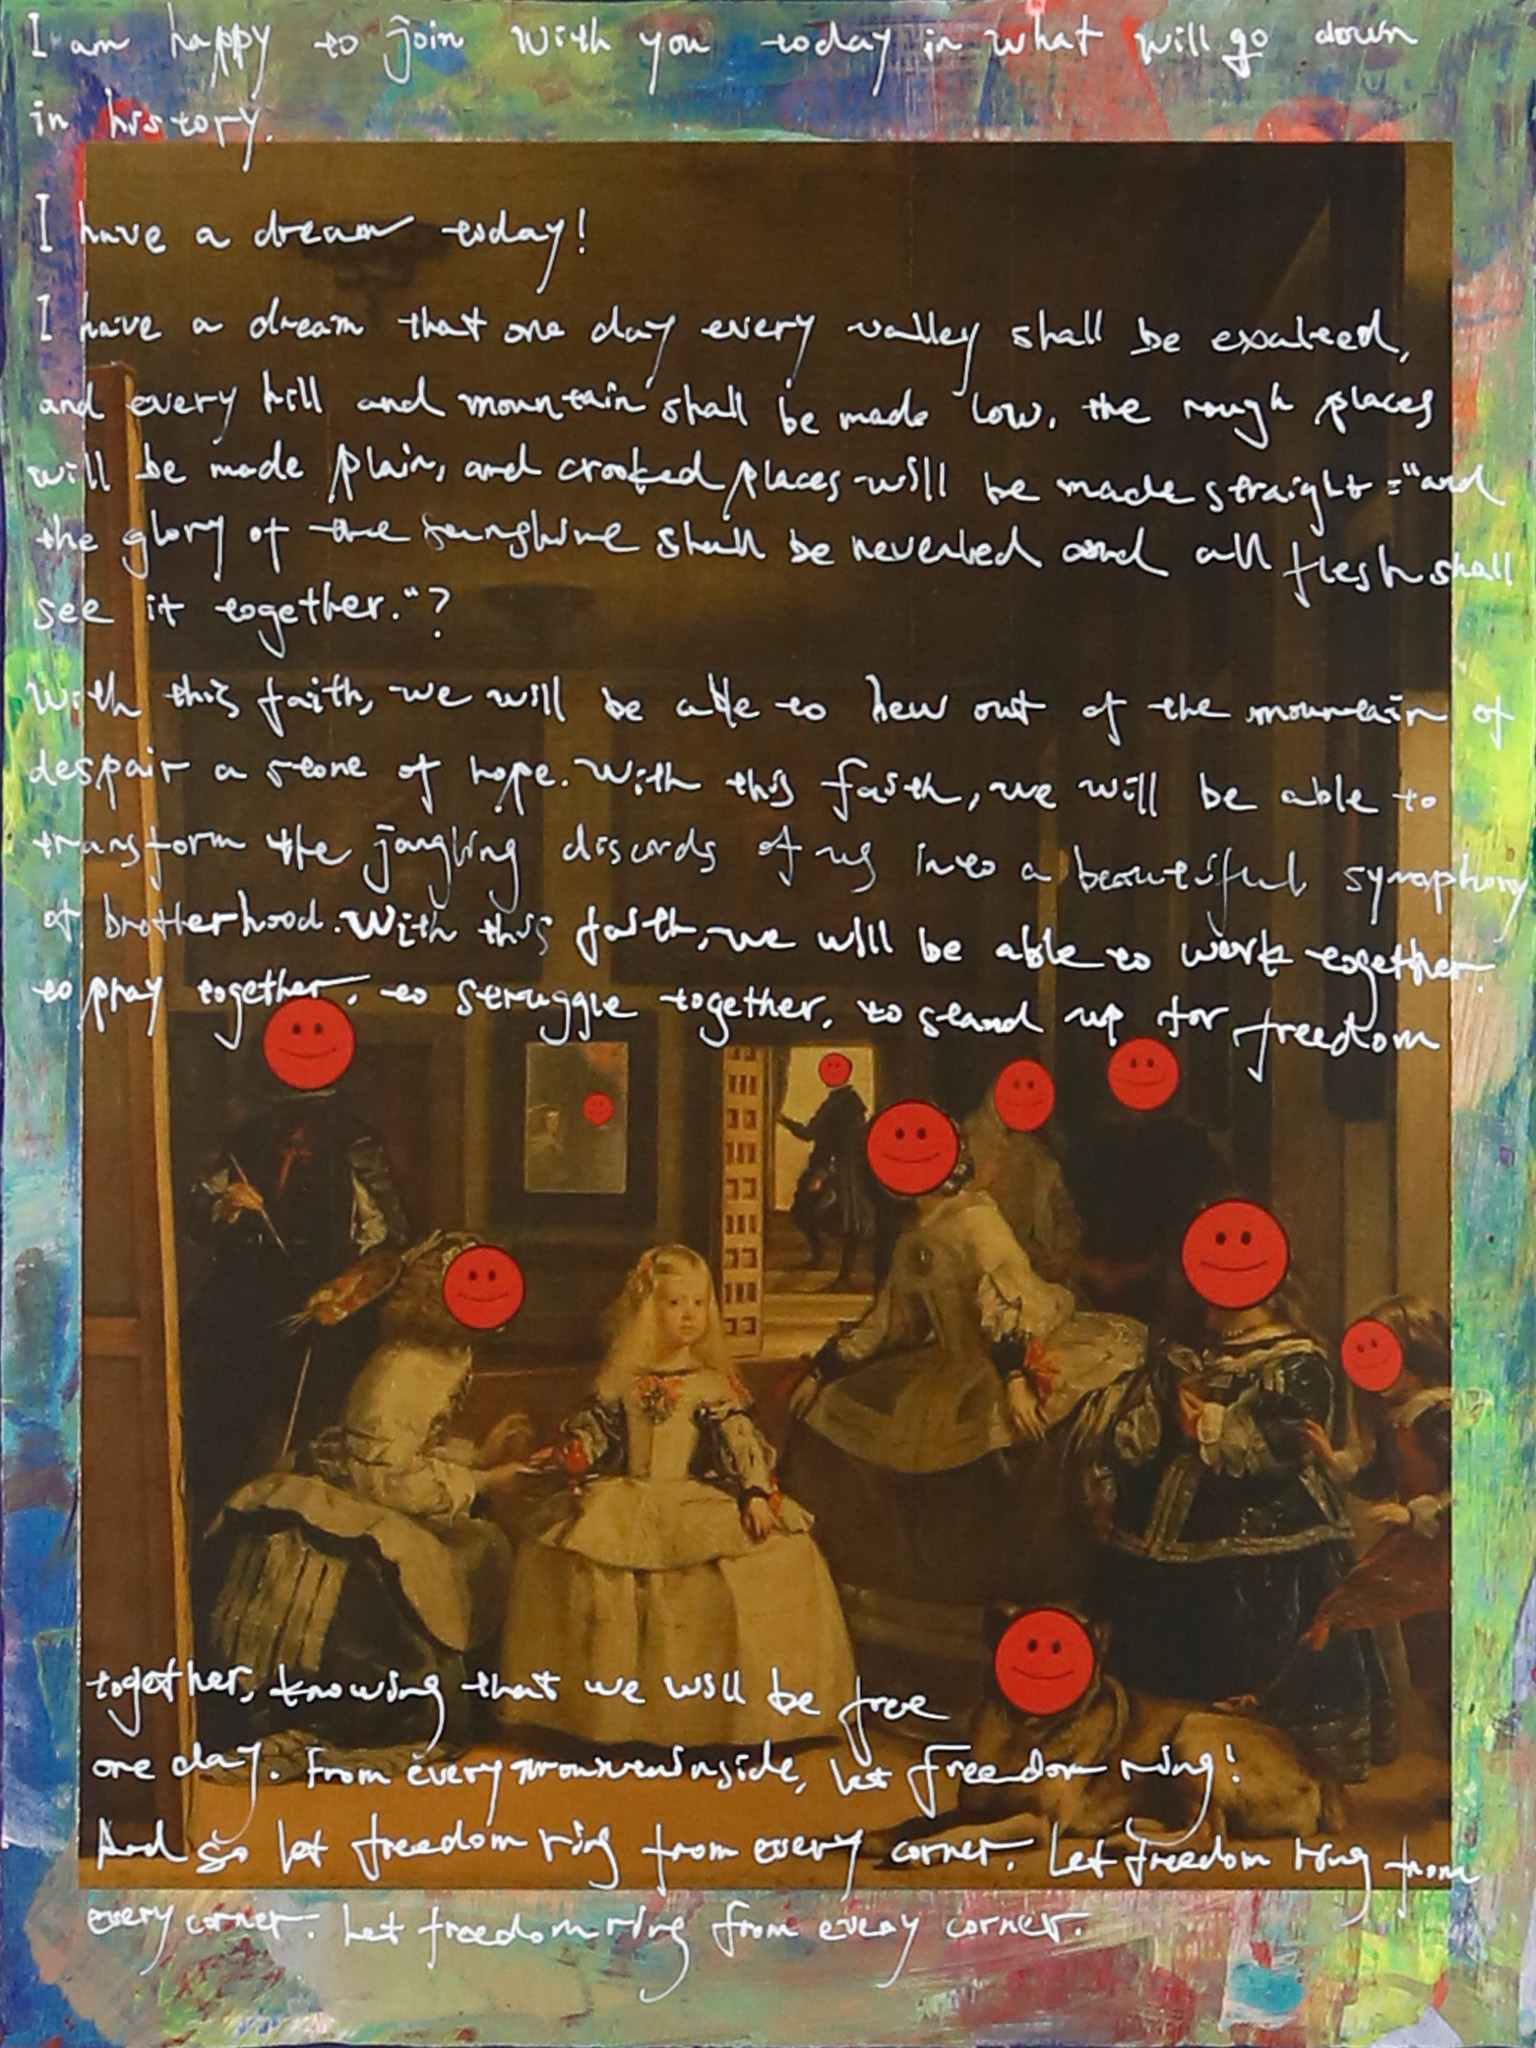 I am happy to join with you today in what will go down
in history.
I have a dream today!
I have a dream that one day every valley shall be exalted,
and every hill and mountain shall be made low. the rough places
will be made plain, and crooked places will be made straight="and
the glory of the sunshine shall be revealed and all flesh shall
see it together."?
With this faith, we will be able to hew out of the mountain of
despair a stone of hope. With this faith, we will be able to
transform the jangling discords of us into a beautiful symphony
of brotherhood. With this faith, we will be able to work together.
to pray together. to struggle together, to stand up for freedom
together, knowing that we will be free
one day. From every let freedom ring!
And so let freedom ring from every corner. Let freedom ring from
every corner. Let freedom ring from every corner.